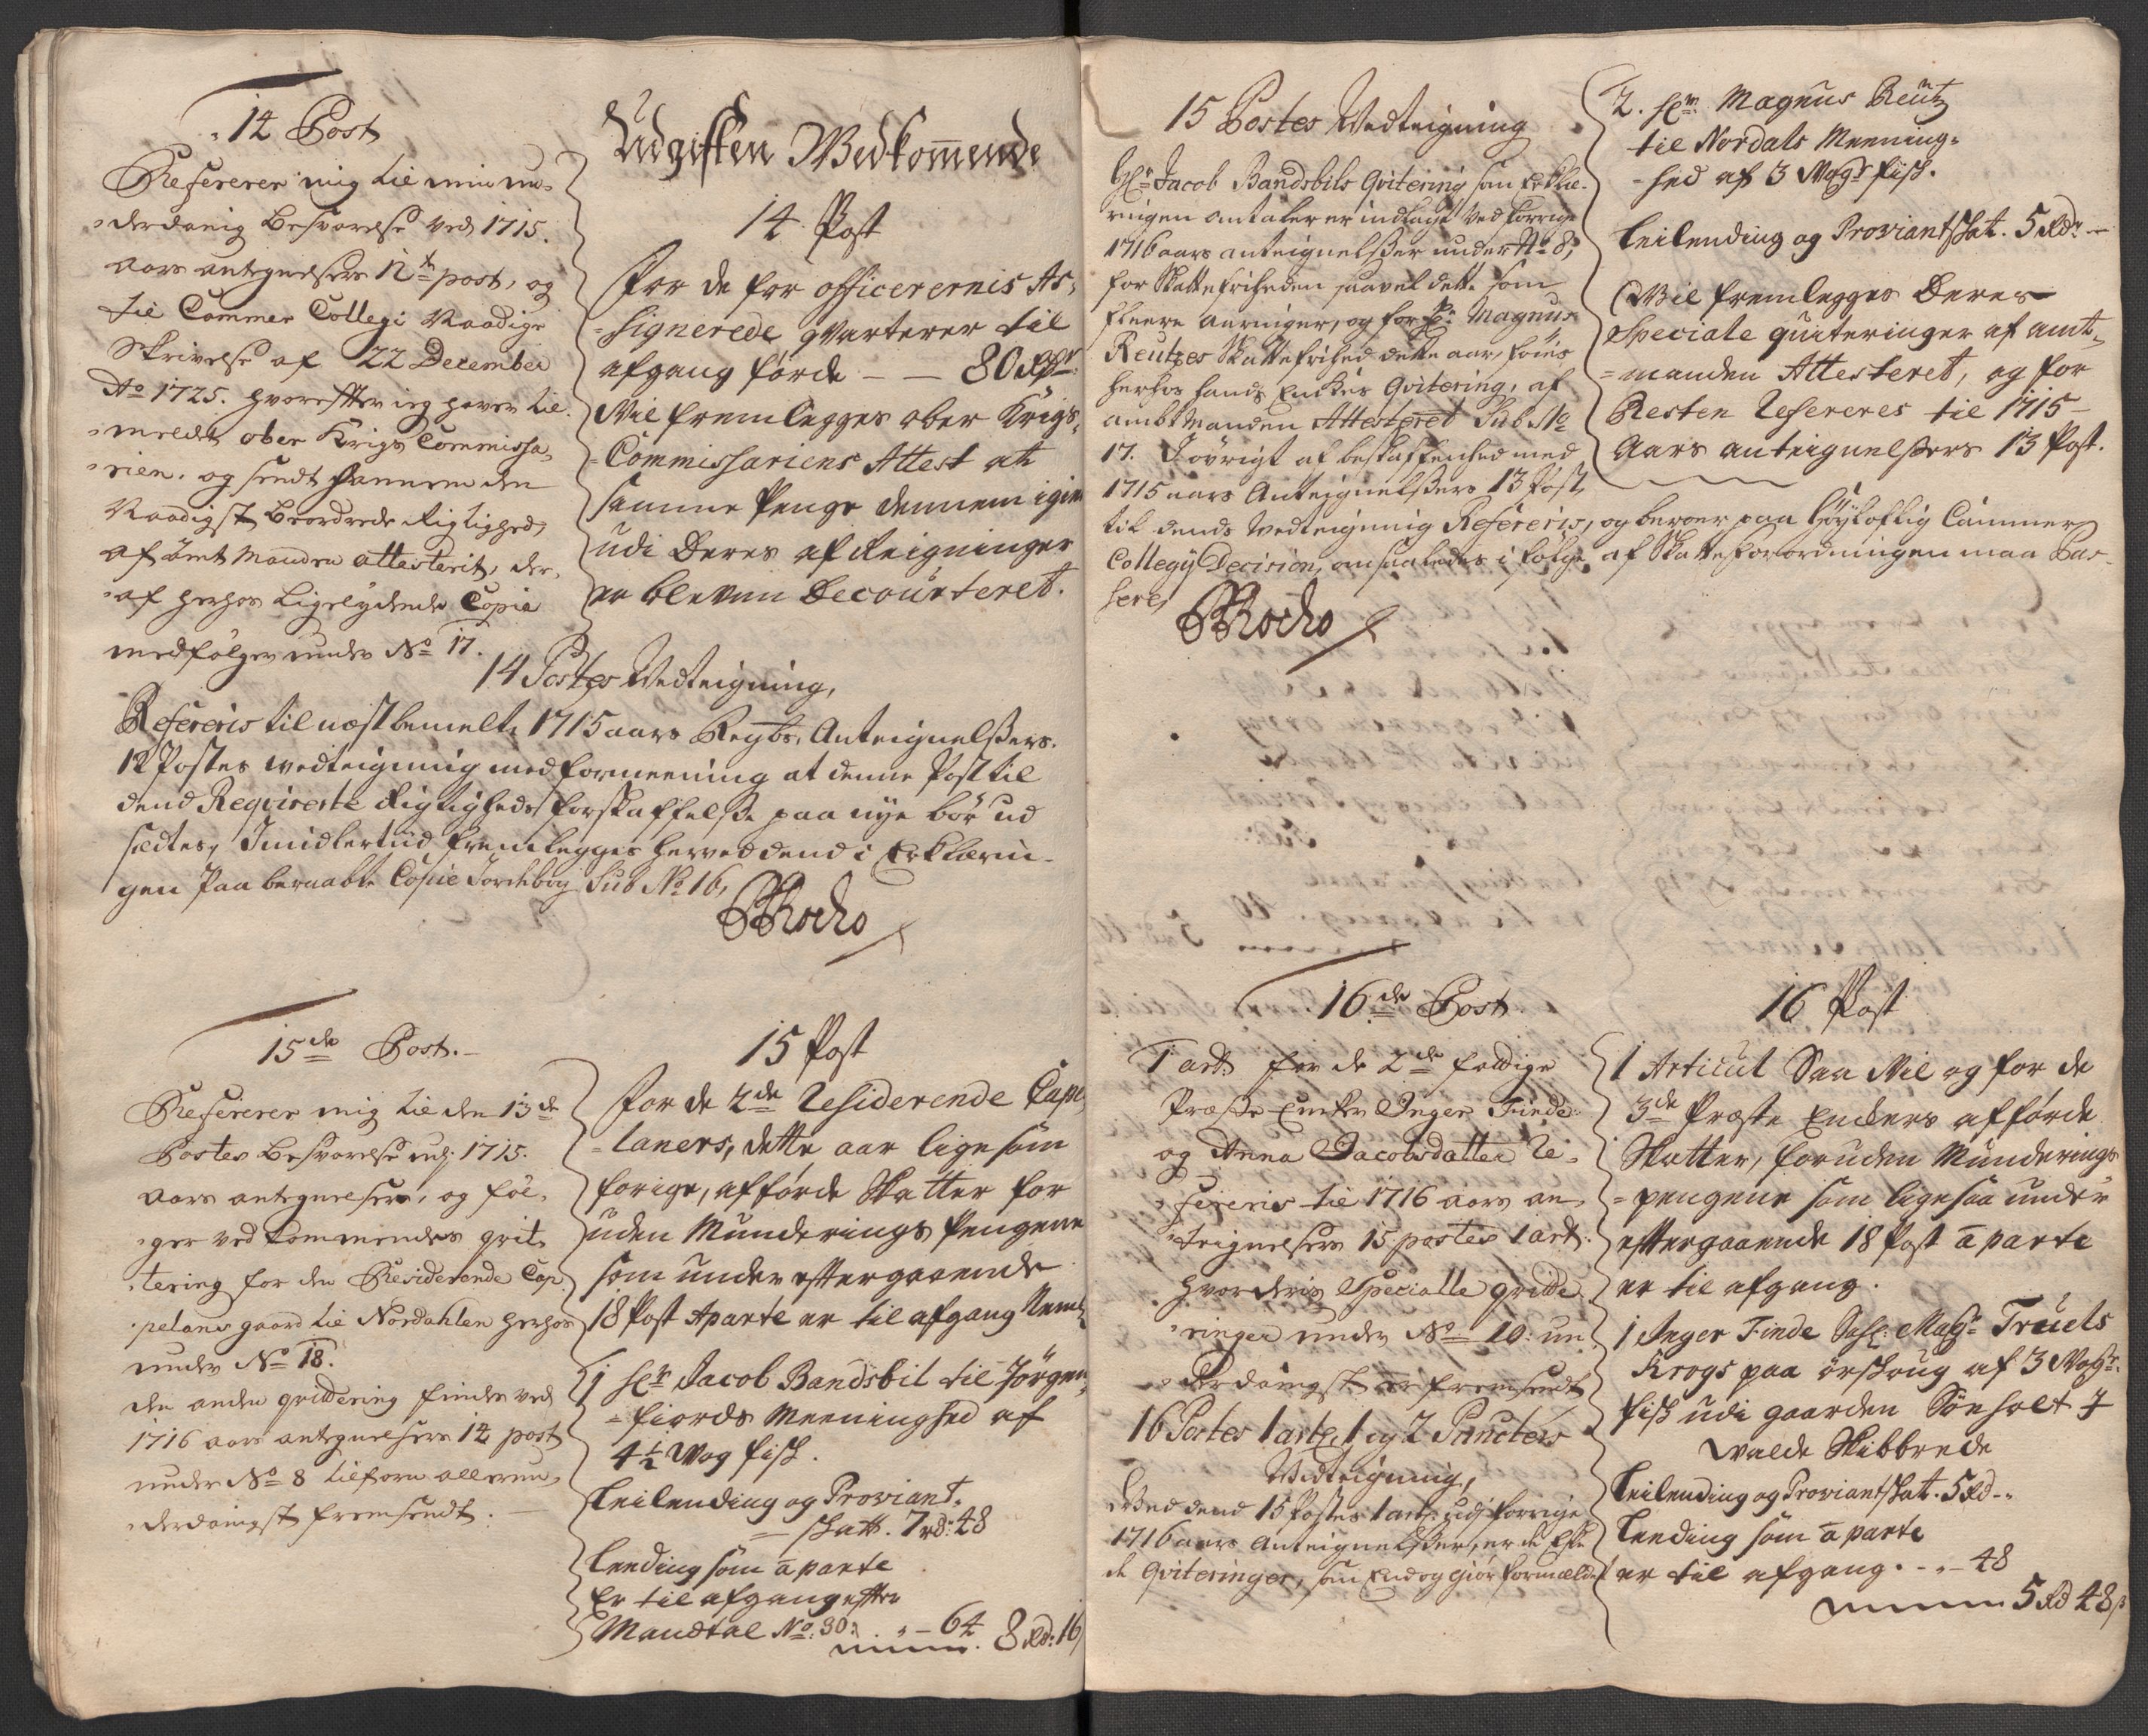 14 Post
Refererer mig til min un-
derdanig besvarelse ved 1715.
aars antegnelsers 12te post, og
til Cammer Collegi Naadige
Skrivelse af 22 December
Ao 1725. hvorefter ieg haver til-
meldt ober Krigs Commissa-
rien, og sendt hannem den
Naadigst beordrede Rigtighed,
af Amtmanden attesterit, der-
af herhos ligelydende Copie
medfölger under No 17.
Udgiften Wedkommende
14 Post
For de for officerernis As-
signerede qvarterer til
afgang förde — — 80 Rdr
Vil fremlegges ober Krigs-
Commissariens Attest at
samme Penge dennem igien
udi Deres afReigninger
er bleven Decourteret.
14 Postes Vedteigning,
Refereris til næstbemelte 1715 aars Regbs. Anteignelssers
12 Postes vedteigning med formeening at denne Post til
dend Reqvirerte Rigtigheds forskaffelsse paa nye bör ud
sædtes, Imidlertiid fremlegges herved dend i Erklærin-
gen Paa beraabte Copie Jordebog Sub No 16,
15de Post.
Refererer mig til den 13de
Postes besvarelse udj 1715.
aars antegnelser, og föl-
ger vedkommendes qvit-
tering for den Residerende Cap-
pelans gaard til Nordahlen herhos
under No 18.
den anden qvittering findes ved
1716 aars antegnelsers 14 post
under No 8 tilforn allerun-
derdanigst fremsendt.
15 Post
For de 2de Residerende Capel-
laners, dette aar lige som
forige, afförde Skatter for
uden Munderings Pengene
som under eftergaaende
18 Post Aparte er til afgang Neml:
1 Hr Jacob Bandsbil til Jörgen-
fiords Meenninghed af
4½ Wog fisk.
Leilending og Proviant-
skatt. 7 rd: 48
Lending som a parte
Er til afgang efter
Mandtal No: 30: — 64
8 Rd: 16
15 Postes Vedteigning
Hr Jacob Bandsbils Qvitering som Erklæ-
ringen omtaler er indlagt ved forrige
1716 aars anteignelsser under No 8,
for Skattefriheden saavel dette som
fleere aaringer, og for Hr Magnus
Reutzes Skattefrihed dette aar, föies
herhos hands Enckes Qvitering, af
ambtmanden Attesteret Sub No
17. I övrigt af beskaffenhed med
1715 aars Anteignelssers 13 Post,
til dends vedteigning Refereris, og beroer paa Höyloflig Cammer
Collegy Decision, om saaledes i fölge af Skatteforordningen maa Pas-
sere,
2. Hr Magnus Reutz
til Nordals Meening-
hed af 3 Wogr fisk.
Leilending og Proviantskat. 5 Rdr —
Vil fremlegges Deres
Speciale quiteringer af amt-
manden Attesteret, og for
Resten Refereres til 1715
Aars anteignelssers 13 Post.
16de Post
1 art. for de 2de fattige
Præste Encker Inger Finde
og Anna Jacobsdatter Re-
fereris til 1716 aars an-
teignelsers 15 postes 1 art.
hvorderis Specialle qvitte-
ringer under No 10: un-
derdanigst er fremsendt
16 Postes 1 art, 1 og 2 Puncters
Vedteigning,
Ved dend 15 Postes 1 art: udj forrige
1716 aars Anteignelsser, er de
de Qviteringer, som Endog giör formeldt
16 Post
1 Articul Saa Vil og for de
3de Præste Enckers afförde
Skatter, foruden Munderings
pengene som ligesaa under
eftergaaende 18 Post a parte
er til afgang.
1 Inger Finde Sal: Magr Truels
Krogs paa örskoug af 3 Wogr:
fisk udi gaarden Sönholt i
walde Skibbrede
Leilending og Proviantskat. 5 Rd -"
Lending som a parte
er til afgang. - " - 48
5 Rd 48 s